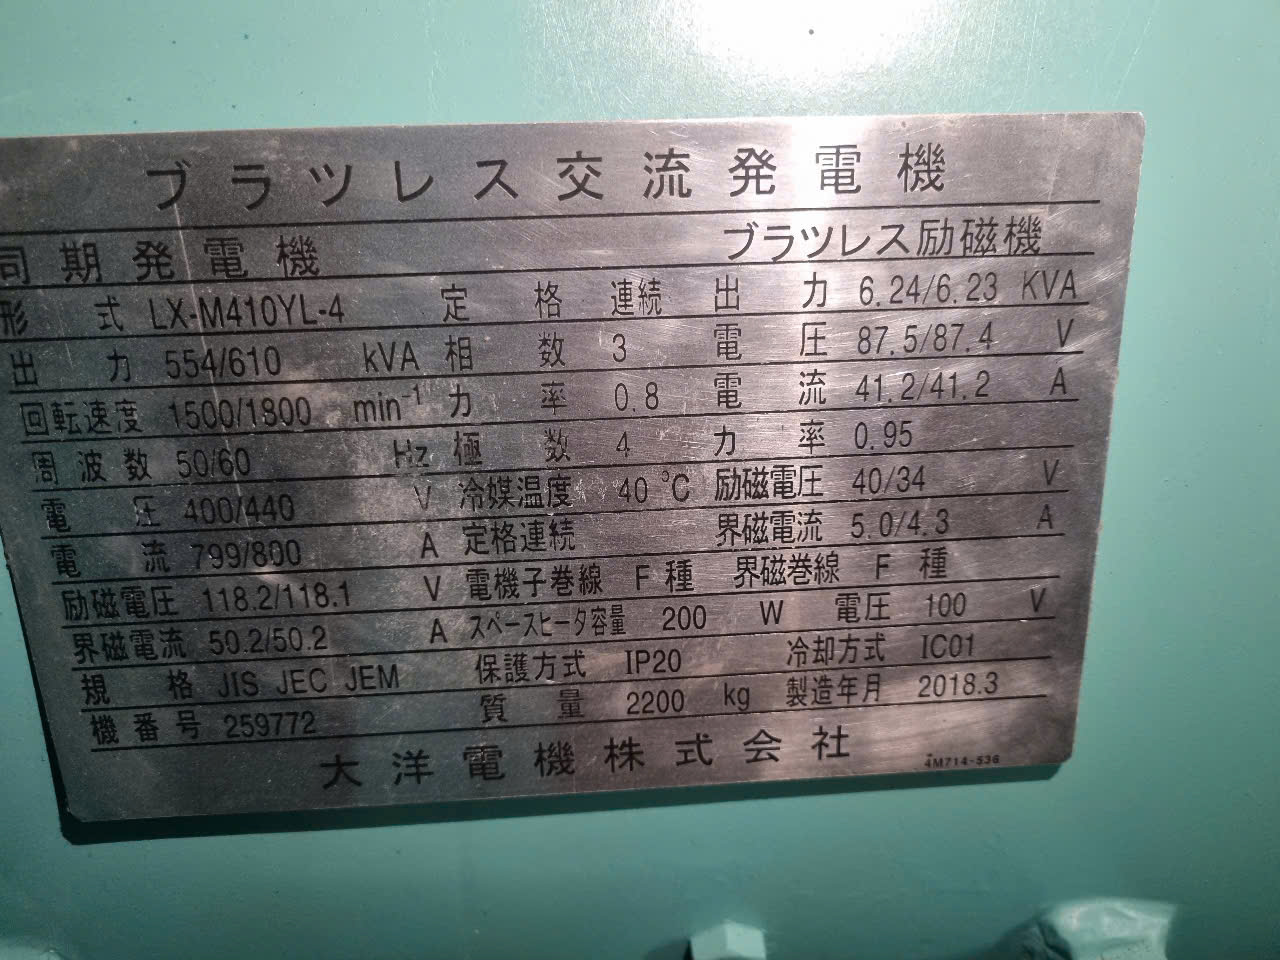 ブラツレス交流発電機
同期発電機 ブラツレス励磁機
形式 LX-M410YL-4 定格 連続 出力 6.24/6.23 KVA
出力 554/610 kVA 相数 3 電圧 87.5/87.4 V
回転速度 1500/1800 min⁻¹ 力率 0.8 電流 41.2/41.2 A
周波数 50/60 Hz 極数 4 力率 0.95
電圧 400/440 V 冷媒温度 40 °C 励磁電圧 40/34 V
電流 799/800 A 定格連続 界磁電流 5.0/4.3 A
励磁電圧 118.2/118.1 V 電機子巻線 F種 界磁巻線 F種
界磁電流 50.2/50.2 A スペースヒータ容量 200 W 電圧 100 V
規格 JIS JEC JEM 保護方式 IP20 冷却方式 IC01
機番号 259772 質量 2200 kg 製造年月 2018.3
大洋電機株式会社 4M714-536